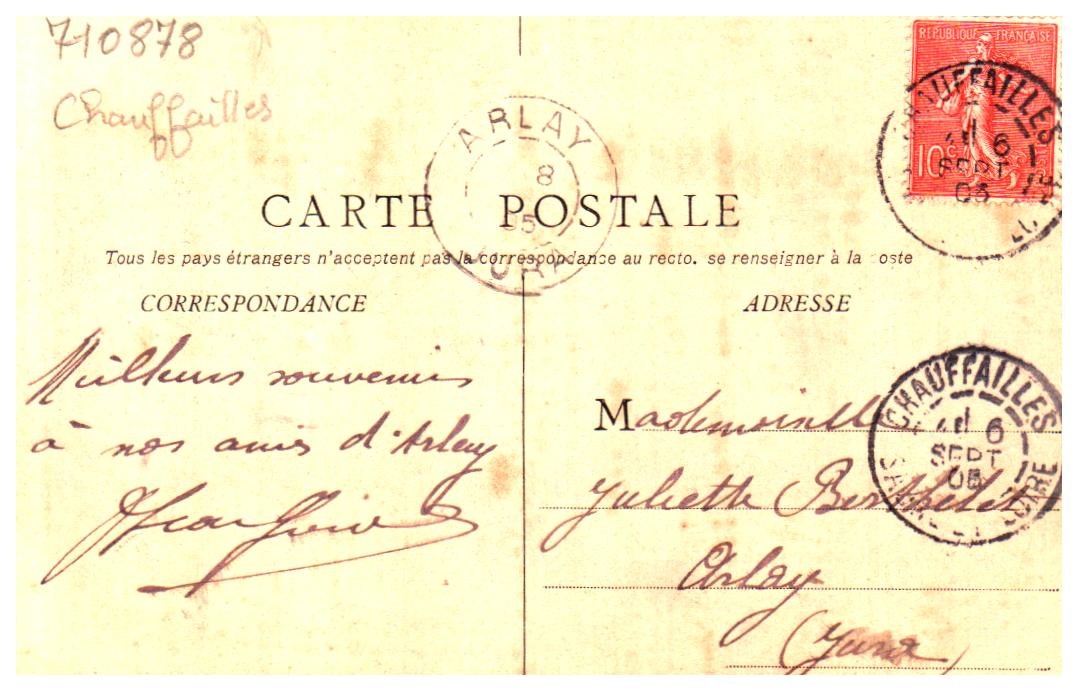 710878
Chauffailles
RÉPUBLIQUE FRANÇAISE
10c
CHAUFFAILLES
6
SEPT
05
ARLAY
8
05
JURA
CARTE POSTALE
Tous les pays étrangers n'acceptent pas la correspondance au recto. se renseigner à la poste
CORRESPONDANCE
ADRESSE
Meilleurs souvenirs
à nos amis d'Arlay
Mademoiselle
Juliette Berthelet
Arlay
(Jura)
CHAUFFAILLES
6
SEPT
05
SAONE-ET-LOIRE